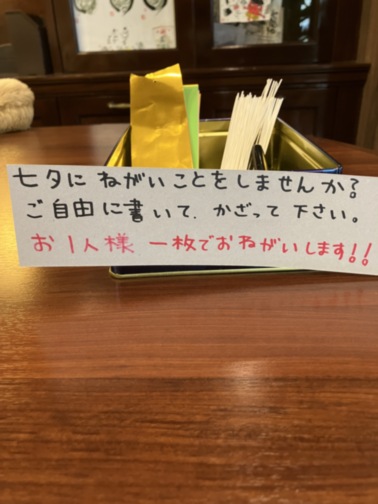 七夕に ねがいことをしませんか?
ご自由に書いて、かざって下さい。
お1人様 一枚でおねがいします!!